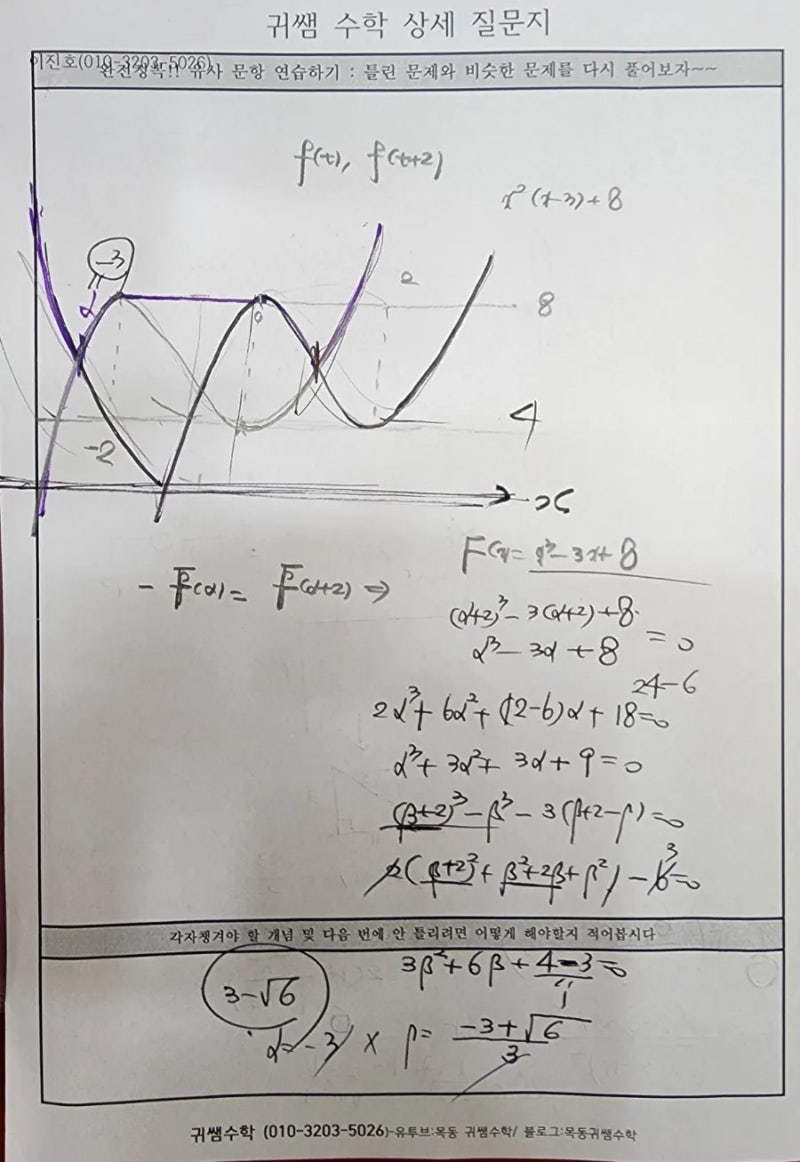 귀쌤 수학 상세 질문지
이진호(010-3203-5026)
완전정복!! 유사 문항 연습하기 : 틀린 문제와 비슷한 문제를 다시 풀어보자~~
f(t), f(t+2)
x²(x-3)+8
-3
α
0
2
8
4
-2
-1
x
F(x)= x³-3x+8
- F(α)= F(α+2) ⇒
(α+2)³- 3(α+2)+8
α³- 3α+8 =0
24-6
2α³+ 6α²+ (12-6)α+ 18=0
α³+ 3α²+ 3α+ 9=0
(β+2)³-β³- 3(β+2-β)=0
2((β+2)²+ β²+2β+β²) - 6=0
3
각자챙겨야 할 개념 및 다음 번에 안 틀리려면 어떻게 해야할지 적어봅시다
3β²+6β+4-3=0
1
3-√6
α=-3 × β= -3+√6
3
귀쌤수학 (010-3203-5026)-유투브:목동 귀쌤수학/ 블로그:목동귀쌤수학